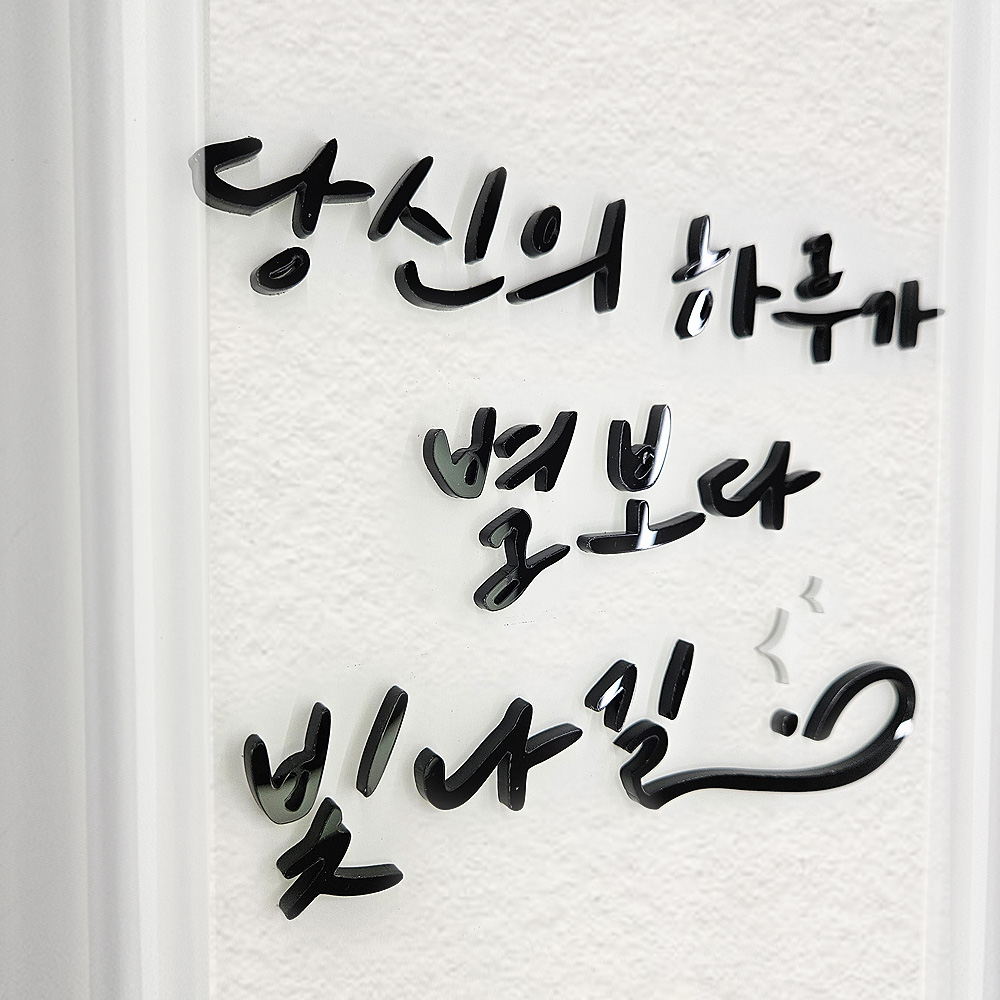 당신의 하루가
별보다
빛나길